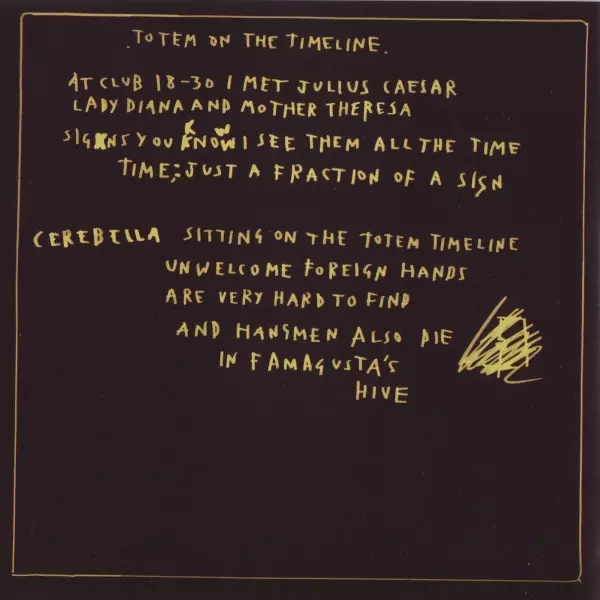 .TOTEM ON THE TIMELINE.
AT CLUB 18-30 I MET JULIUS CAESAR
LADY DIANA AND MOTHER THERESA
SIGNS YOU KNOW I SEE THEM ALL THE TIME
TIME; JUST A FRACTION OF A SIGN
CEREBELLA SITTING ON THE TOTEM TIMELINE
UNWELCOME FOREIGN HANDS
ARE VERY HARD TO FIND
AND HANGMEN ALSO DIE
IN FAMAGUSTA'S
HIVE